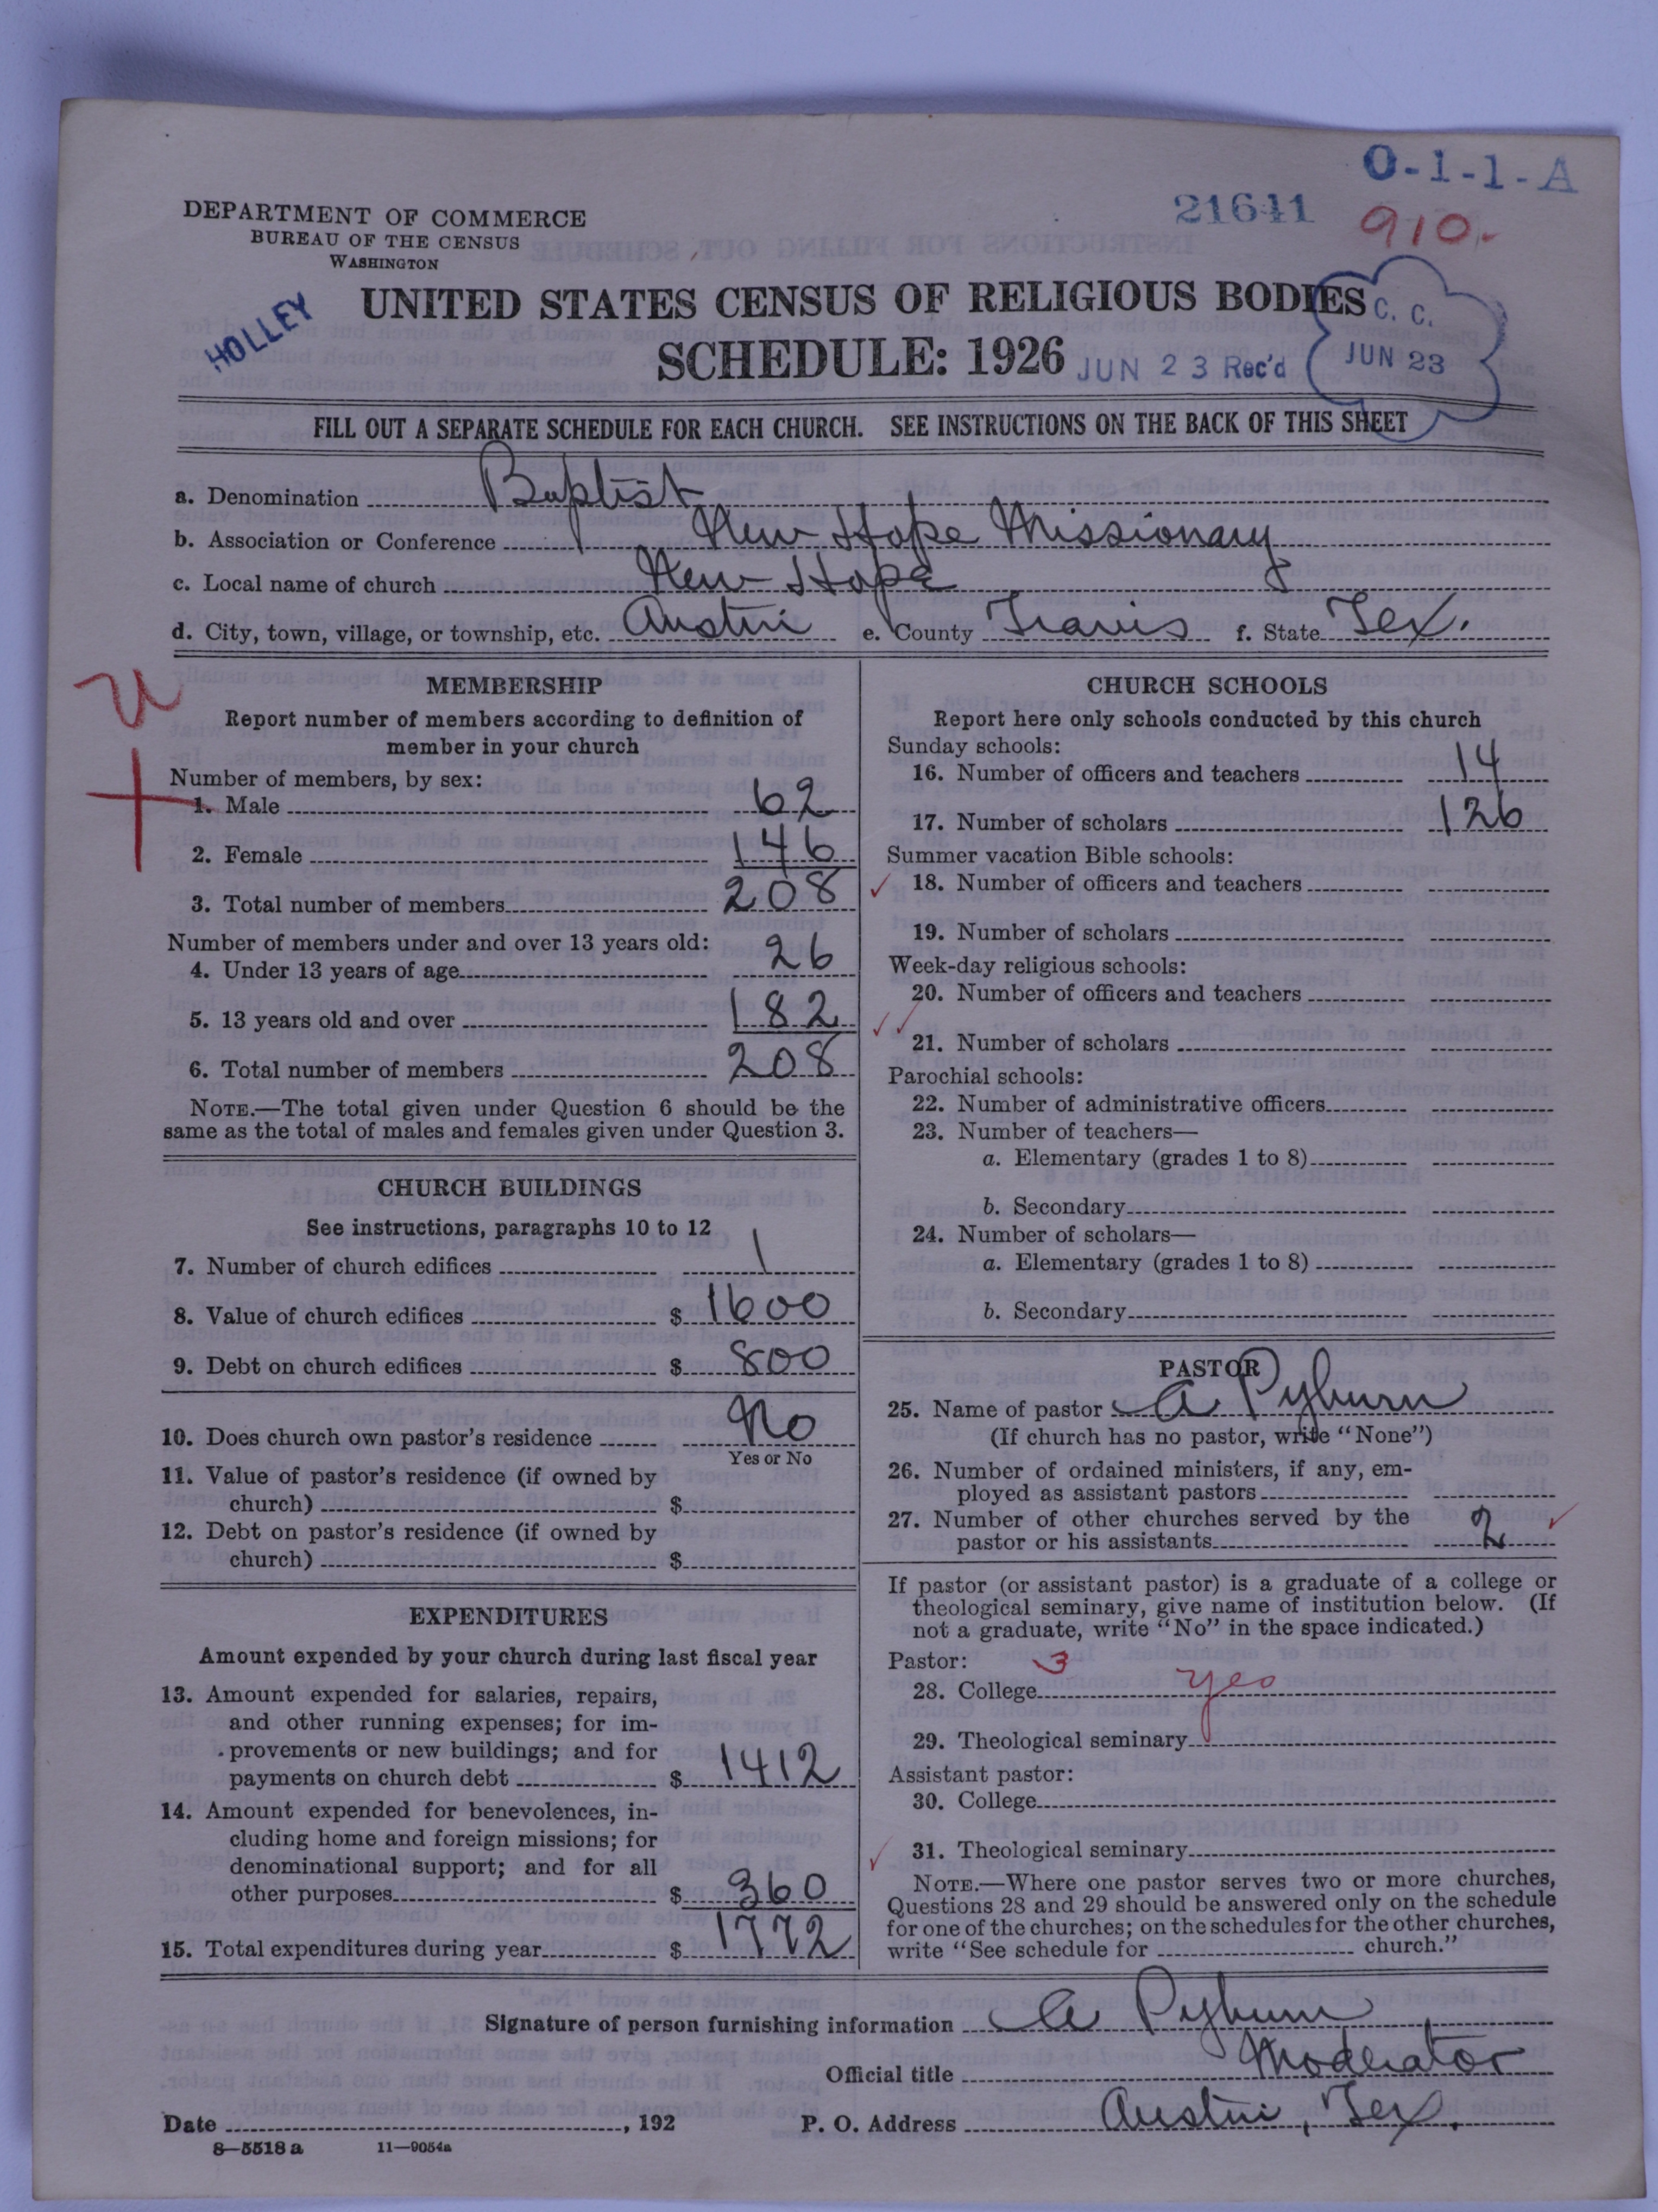 O-1-1-A
21641
910.
DEPARTMENT OF COMMERCE
BUREAU OF THE CENSUS
WASHINGTON
HOLLEY
UNITED STATES CENSUS OF RELIGIOUS BODIES
SCHEDULE: 1926
JUN 23 Rec'd
C. C.
JUN 23
FILL OUT A SEPARATE SCHEDULE FOR EACH CHURCH. SEE INSTRUCTIONS ON THE BACK OF THIS SHEET
a. Denomination Baptist
b. Association or Conference New Hope Missionary
c. Local name of church New Hope
d. City, town, village, or township, etc. Austin e. County Travis f. State Tex.
MEMBERSHIP
Report number of members according to definition of
member in your church
Number of members, by sex:
1. Male 62
2. Female 146
3. Total number of members 208
Number of members under and over 13 years old:
4. Under 13 years of age 26
5. 13 years old and over 182
6. Total number of members 208
NOTE.—The total given under Question 6 should be the
same as the total of males and females given under Question 3.
CHURCH BUILDINGS
See instructions, paragraphs 10 to 12
7. Number of church edifices 1
8. Value of church edifices $ 1600
9. Debt on church edifices $ 800
10. Does church own pastor's residence No
Yes or No
11. Value of pastor's residence (if owned by
church) $
12. Debt on pastor's residence (if owned by
church) $
EXPENDITURES
Amount expended by your church during last fiscal year
13. Amount expended for salaries, repairs,
and other running expenses; for im-
provements or new buildings; and for
payments on church debt $ 1412
14. Amount expended for benevolences, in-
cluding home and foreign missions; for
denominational support; and for all
other purposes $ 360
15. Total expenditures during year $ 1772
CHURCH SCHOOLS
Report here only schools conducted by this church
Sunday schools:
16. Number of officers and teachers 14
17. Number of scholars 126
Summer vacation Bible schools:
18. Number of officers and teachers
19. Number of scholars
Week-day religious schools:
20. Number of officers and teachers
21. Number of scholars
Parochial schools:
22. Number of administrative officers
23. Number of teachers—
a. Elementary (grades 1 to 8)
b. Secondary
24. Number of scholars—
a. Elementary (grades 1 to 8)
b. Secondary
PASTOR
25. Name of pastor A Pyburn
(If church has no pastor, write "None")
26. Number of ordained ministers, if any, em-
ployed as assistant pastors
27. Number of other churches served by the
pastor or his assistants 2
If pastor (or assistant pastor) is a graduate of a college or
theological seminary, give name of institution below. (If
not a graduate, write "No" in the space indicated.)
Pastor: 3
28. College yes
29. Theological seminary
Assistant pastor:
30. College
31. Theological seminary
NOTE.—Where one pastor serves two or more churches,
Questions 28 and 29 should be answered only on the schedule
for one of the churches; on the schedules for the other churches,
write "See schedule for church."
Signature of person furnishing information A Pyburn
Official title Moderator
Date , 192 P. O. Address Austin, Tex.
8—5518 a 11—9054a